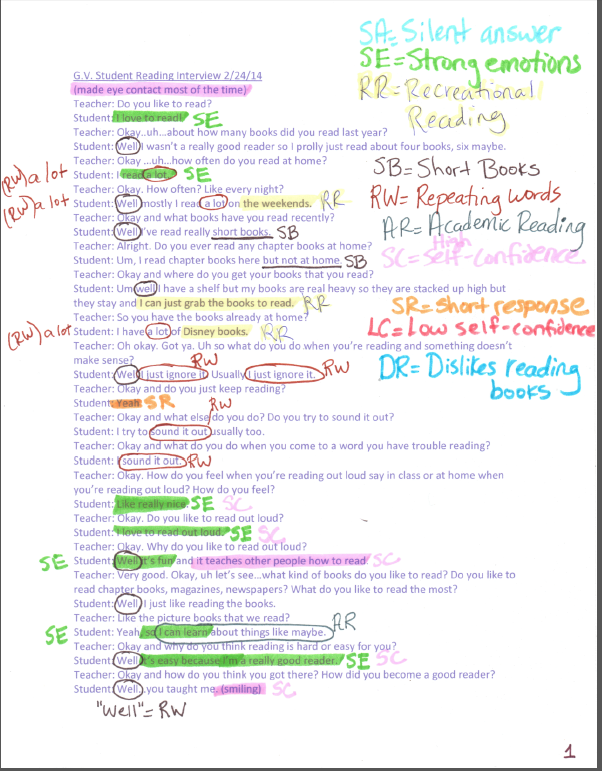 SA= Silent answer
SE= Strong emotions
RR= Recreational
Reading
G.V. Student Reading Interview 2/24/14
(made eye contact most of the time)
Teacher: Do you like to read?
Student: I love to read! SE
Teacher: Okay..uh…about how many books did you read last year?
Student: Well I wasn't a really good reader so I prolly just read about four books, six maybe.
Teacher: Okay …uh…how often do you read at home?
(RW) a lot Student: I read a lot. SE SB= Short Books
Teacher: Okay. How often? Like every night?
(RW) a lot Student: Well mostly I read a lot on the weekends. RR RW= Repeating words
Teacher: Okay and what books have you read recently?
Student: Well I've read really short books. SB AR= Academic Reading
Teacher: Alright. Do you ever read any chapter books at home?
Student: Um, I read chapter books here but not at home. SB SC= High Self-Confidence
Teacher: Okay and where do you get your books that you read?
Student: Um well I have a shelf but my books are real heavy so they are stacked up high but
they stay and I can just grab the books to read. RR SR= Short response
Teacher: So you have the books already at home?
(RW) a lot Student: I have a lot of Disney books. RR LC= Low self-confidence
Teacher: Oh okay. Got ya. Uh so what do you do when you're reading and something doesn't
make sense? RW
Student: Well I just ignore it. Usually I just ignore it. RW DR= Dislikes reading
books
Teacher: Okay and do you just keep reading?
Student: Yeah. SR RW
Teacher: Okay and what else do you do? Do you try to sound it out?
Student: I try to sound it out usually too.
Teacher: Okay and what do you do when you come to a word you have trouble reading?
Student: I sound it out. RW
Teacher: Okay. How do you feel when you're reading out loud say in class or at home when
you're reading out loud? How do you feel?
Student: Like really nice. SE SC
Teacher: Okay. Do you like to read out loud?
Student: I love to read out loud. SE SC
Teacher: Okay. Why do you like to read out loud?
SE Student: Well it's fun and it teaches other people how to read. SC
Teacher: Very good. Okay, uh let's see…what kind of books do you like to read? Do you like to
read chapter books, magazines, newspapers? What do you like to read the most?
Student: Well I just like reading the books.
Teacher: Like the picture books that we read? AR
SE Student: Yeah, so I can learn about things like maybe.
Teacher: Okay and why do you think reading is hard or easy for you?
Student: Well it's easy because I'm a really good reader. SE SC
Teacher: Okay and how do you think you got there? How did you become a good reader?
Student: Well..you taught me. (smiling) SC
"Well"= RW
1